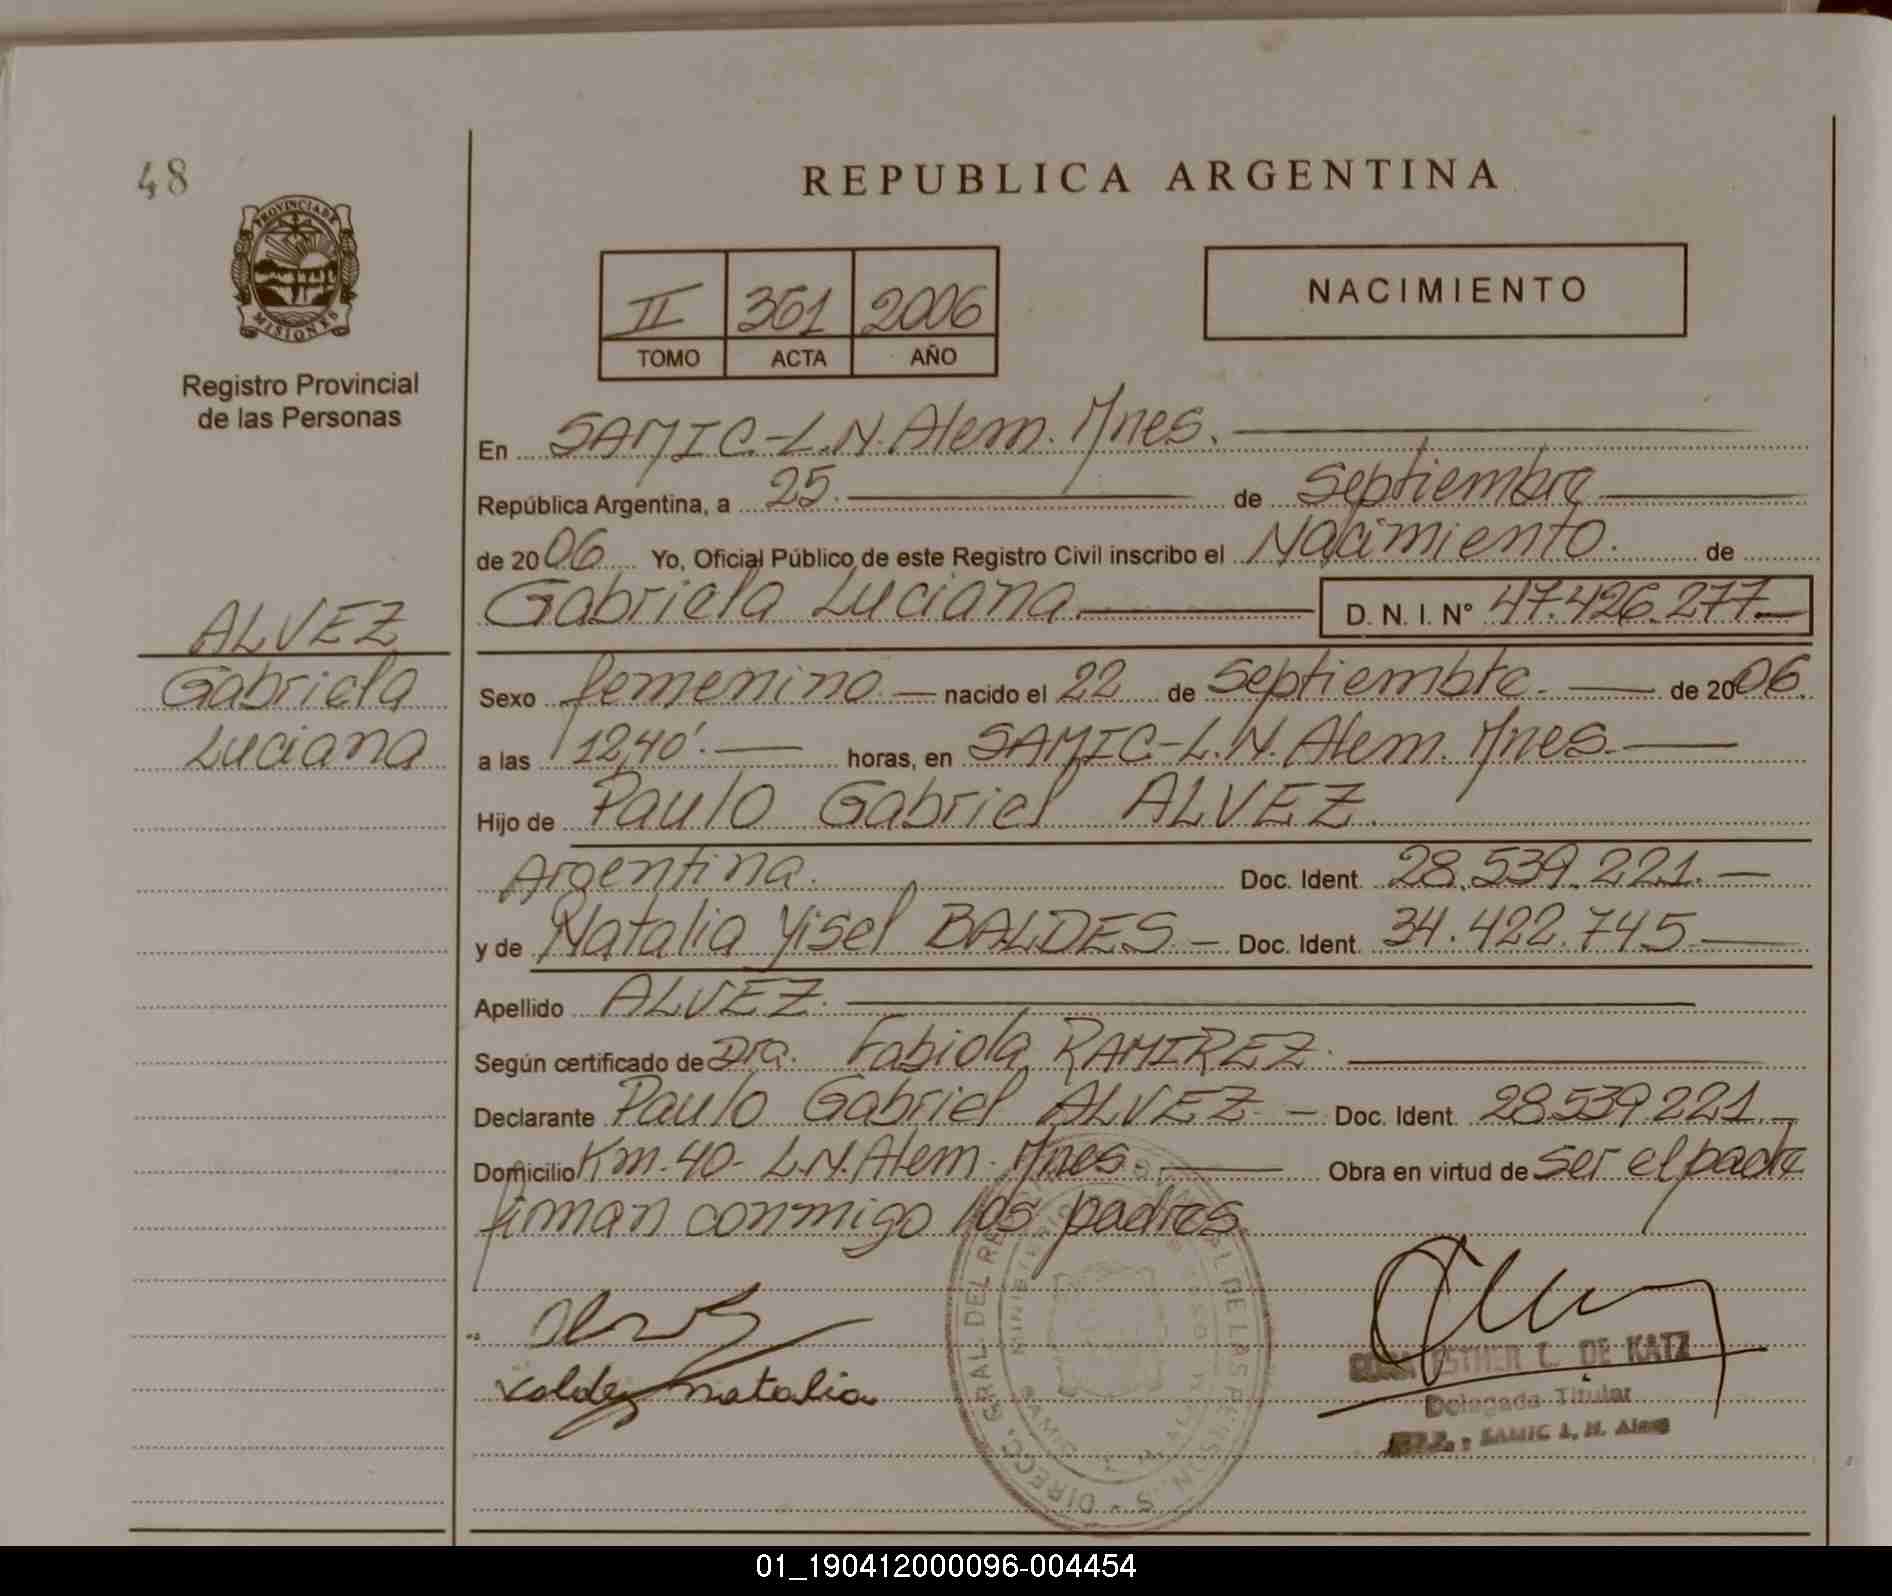 48
REPUBLICA ARGENTINA
PROVINCIA DE
MISIONES
Registro Provincial
de las Personas
II 361 2006
TOMO ACTA AÑO
NACIMIENTO
En SAMIC-L.N.Alem. Mnes.
República Argentina, a 25. de Septiembre
de 2006 Yo, Oficial Público de este Registro Civil inscribo el Nacimiento. de
Gabriela Luciana. D. N. I. N° 47.426.277
ALVEZ
Gabriela
Luciana
Sexo femenino nacido el 22 de Septiembre. de 2006.
a las 12,40'. horas, en SAMIC-L.N.Alem. Mnes.
Hijo de Paulo Gabriel ALVEZ.
Argentina. Doc. Ident. 28.539.221.
y de Natalia Yisel BALDES Doc. Ident. 34.422.745
Apellido ALVEZ.
Según certificado de Dra. Fabiola RAMIREZ.
Declarante Paulo Gabriel ALVEZ Doc. Ident. 28.539.221.
Domicilio Km.40- L.N.Alem. Mnes. Obra en virtud de ser el padre
firman conmigo los padres.
Valdez natalia
ESTHER C. DE KATZ
Delegada Titular
SAMIC L. N. Alem
01_190412000096-004454